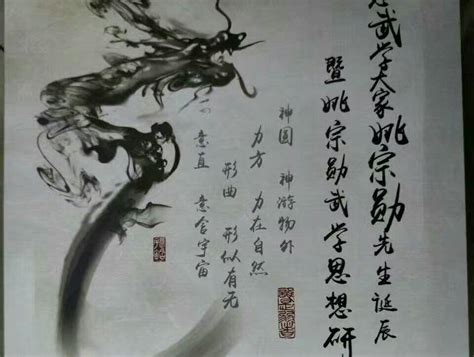 武学大家姚宗勋先生诞辰
暨姚宗勋武学思想研
神圆 神游物外
力方 力在自然
形曲 形似有无
意直 意含宇宙